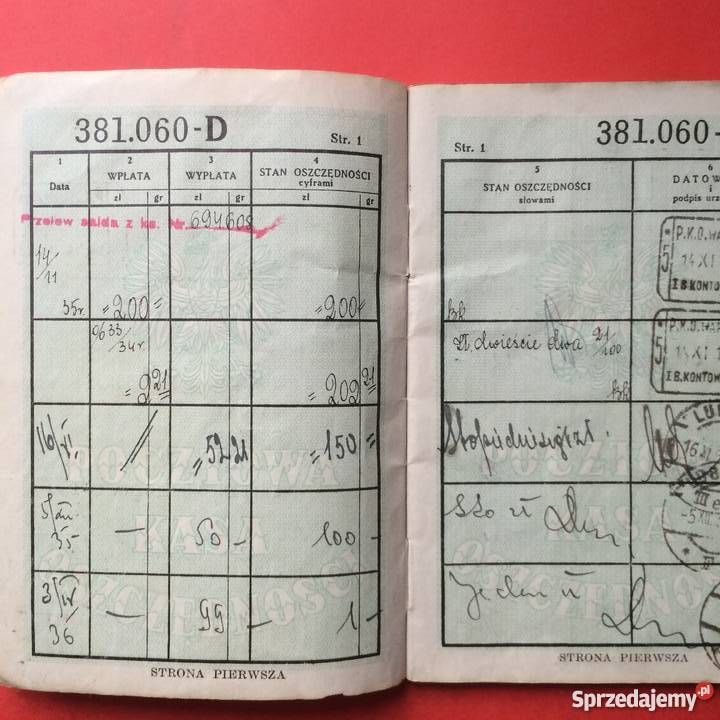 381.060-D
Str. 1
1
Data
2
WPŁATA
zł gr
3
WYPŁATA
zł gr
4
STAN OSZCZĘDNOŚCI
cyframi
zł gr
Przelew salda z ks. Nr. 694608
14/11
35r. =200= =200=
% 33/34r
=2 21 =202 21
16/XI. // =52 21 =150=
5/XII 35 — 50 - 100 -
3/IV 36 — 99 - 1 -
POCZTOWA
KASA
OSZCZĘDNOŚCI
STRONA PIERWSZA
Str. 1
381.060-
5
STAN OSZCZĘDNOŚCI
słowami
6
DATOW
i
podpis urz
P.K.O. WA
14 XI
5
I B. KONTOW
Zł. dwieście dwa 21/100
P.K.O. WAR
5
I B. KONTOW
Stopięćdziesiąt zł.
LU
16 XI
Sto zł
III e
-5 XII
Jeden zł
POCZTO
KASA
OSZCZĘDNOŚ
STRONA PIERWSZA
Sprzedajemy.pl